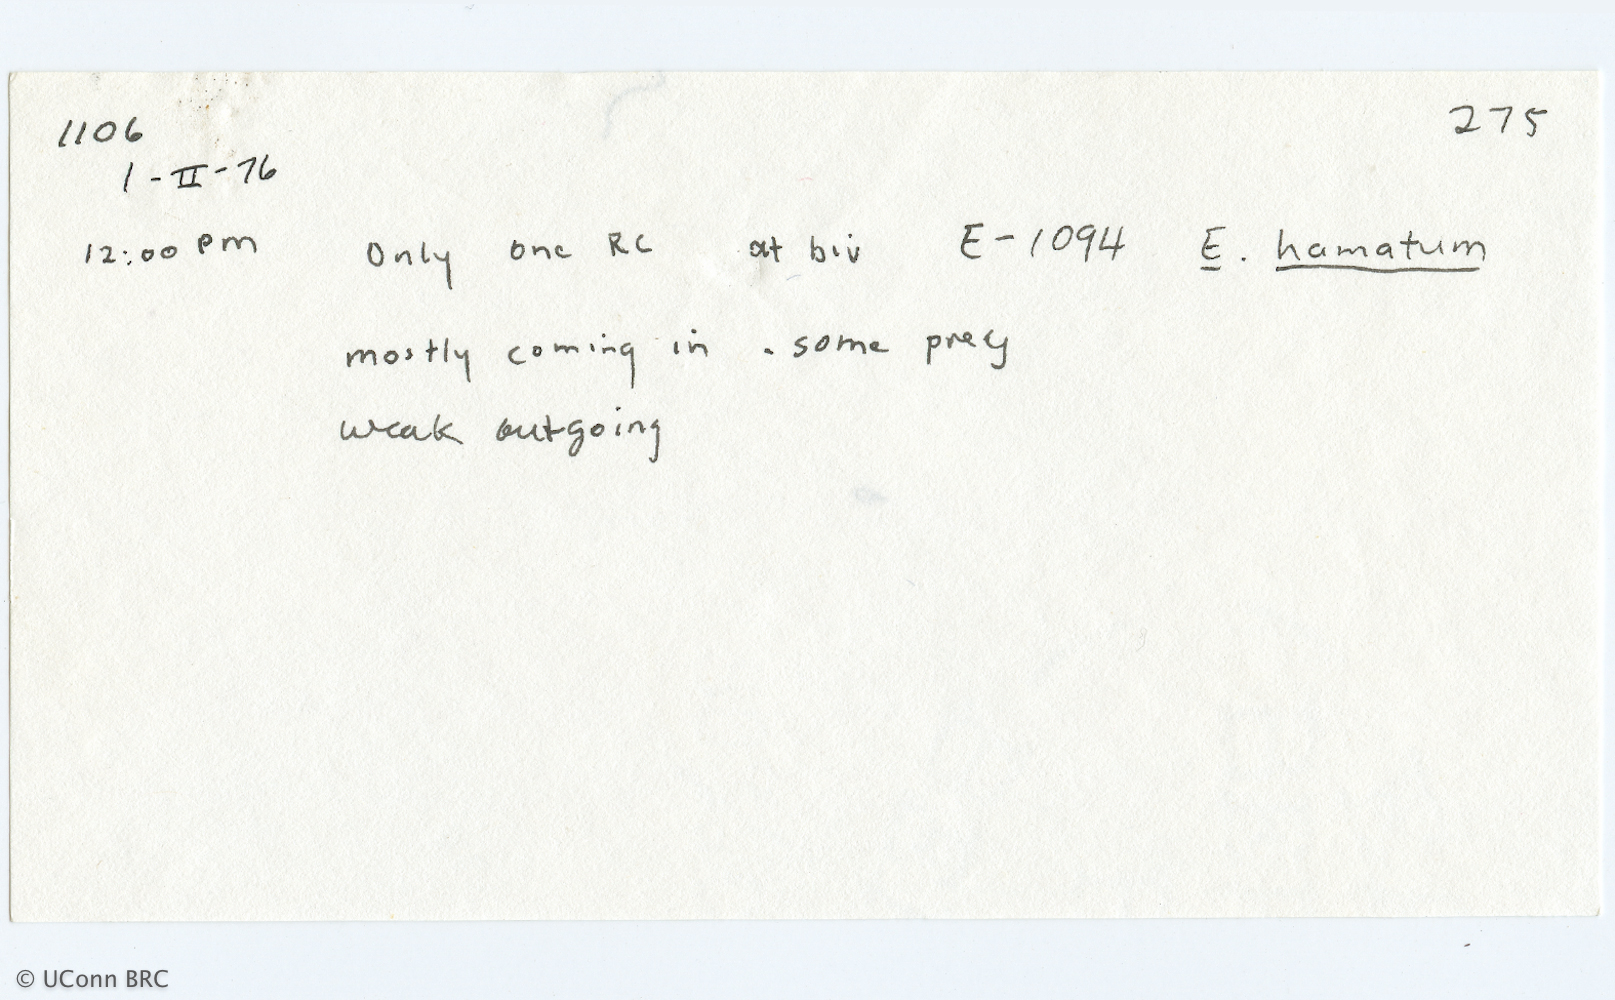 1106
275
1-II-76
12:00 pm Only one RC at biv E-1094 E. hamatum
mostly coming in . some prey
weak outgoing
© UConn BRC